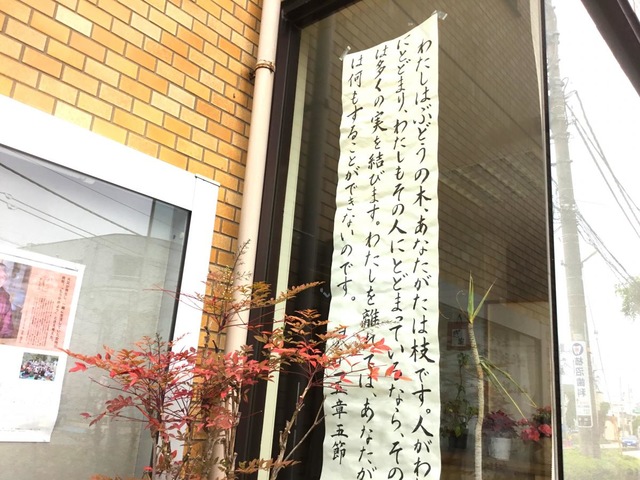 わたしはぶどうの木、あなたがたは枝です。人がわ
にとどまり、わたしもその人にとどまっているなら、その
は多くの実を結びます。わたしを離れては、あなたが
は何もすることができないのです。
五章五節